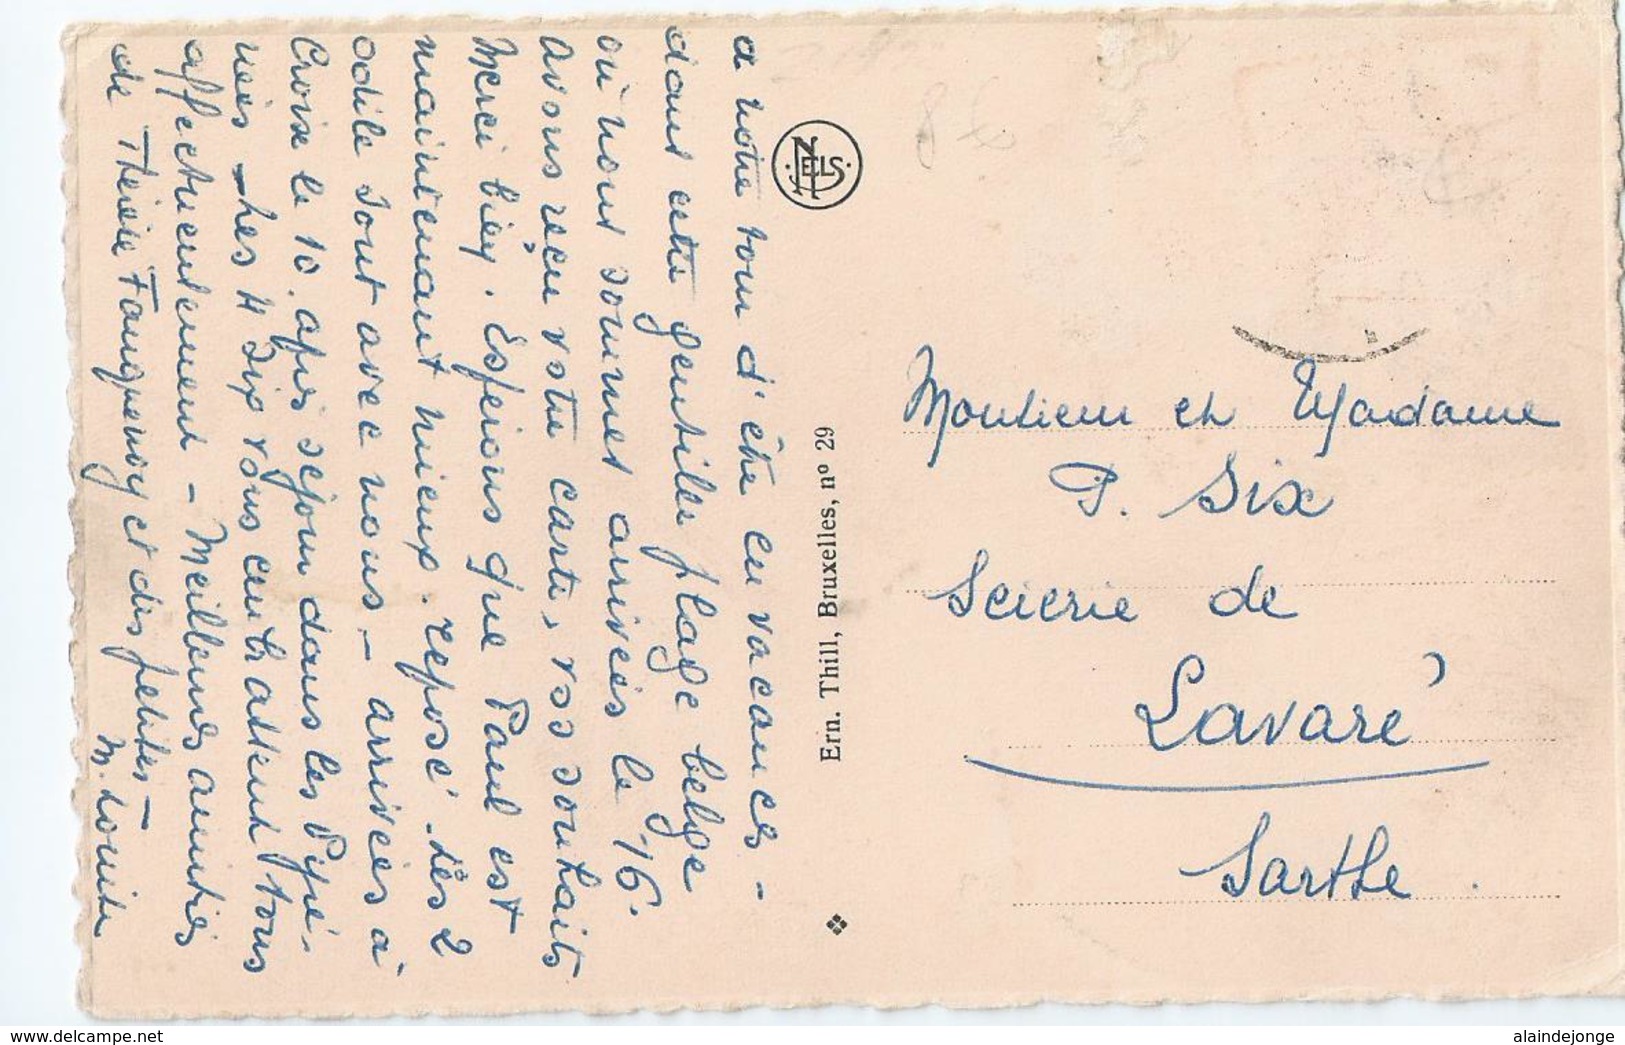 a notre tour d'être en vacances -
dans cette gentille plage belge
où nous sommes arrivés le 16.
Avons reçu votre carte, vos souhaits
Merci bien. Espérons que Paul est
maintenant mieux. reposé. Les 2
odile sont avec nous - arrivées à
Croix le 10. après séjour dans les Pyré-
nées - Les 4 Six vous embrassent tous
affectueusement - Meilleures amitiés
de Thérèse Fauquenoy et des petites -
M. Louise
NELS
Ern. Thill, Bruxelles, nº 29
Monsieur et Madame
P. Six
Scierie de
Lavaré
Sarthe
alaindejonge